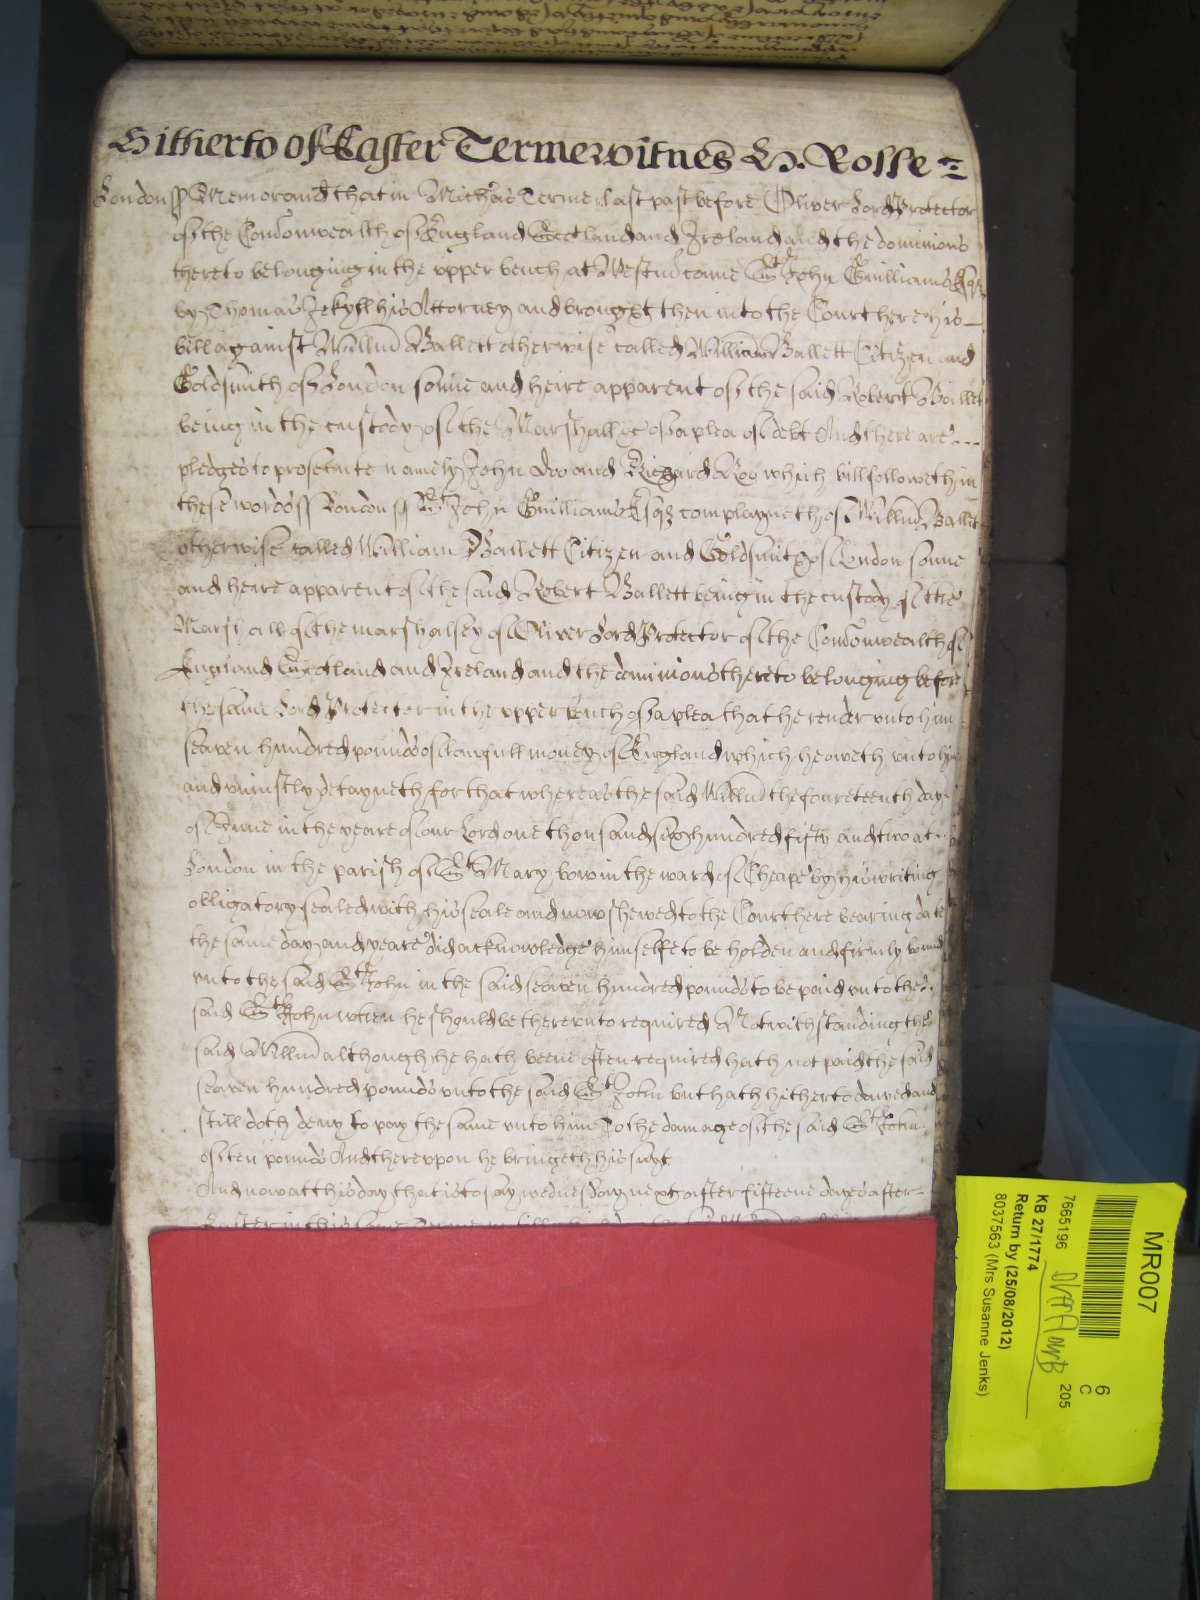 Hitherto of Easter Terme witnes H. Rolle
London ss Memorand that in Michãs Terme last past before Oliver Lord Protector
of the Comonwealth of England Scotland and Ireland and the dominions
thereto belonging in the upper bench at Westm̃ came St John Guilliams Esqr
by Thomas Jekyll his Attorney and brought then into the Court here his
bill against Willm̃ Ballett otherwise called William Ballett Citizen and
Goldsmith of London sonne and heire apparent of the said Robert Ballett
being in the custody of the Marshall &c of a plea of debt And there are
pledges to prosecute namely John Doo and Richard Roo which bill followeth in
these words ss London ss St John Guilliams Esqr complayneth of Willm̃ Ballett
otherwise called William Ballett Citizen and Goldsmith of London sonne
and heire apparent of the said Robert Ballett being in the custody of the
Marshall of the marshalsey of Oliver Lord Protector of the Comonwealth of
England Scotland and Ireland and the dominions thereto belonging before
the same Lord Protector in the upper bench of a plea that he render unto him
seaven hundred pounds of lawfull money of England which he oweth unto him
and uniustly detayneth for that whereas the said Willm̃ the foureteenth day
of June in the yeare of our Lord one thousand six hundred fifty and two at
London in the parish of St Mary bow in the ward of Cheape by his writing
obligatory sealed with his seale and now shewed to the Court here bearing date
the same day and yeare did acknowledge himselfe to be holden and firmly bound
unto the said St John in the said seaven hundred pounds to be paid unto the
said St John when he should be thereunto required Notwithstanding the
said Willm̃ although he hath beene often required hath not paid the said
seaven hundred pounds unto the said St John but hath hitherto denyed and
still doth deny to pay the same unto him To the damage of the said St John
of ten pounds And thereupon he bringeth his suyt
And now at this day that is to say wednesday next after fifteene dayes after
Easter in this same Terme
MR007
7665196
6
C
205
KB 27/1774
Return by (25/08/2012)
8037563 (Mrs Susanne Jenks)